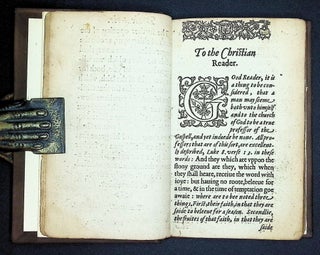 To the Christian
Reader.
GOod Reader, it is
a thing to be con-
sidered, that a
man may seeme
both vnto himself
and to the church
of God to be a true
professor of the
Gospell, and yet indeede be none. All pro-
fessors that are of this sort, are excellent-
ly described, Luke 8. verse 13. in these
words: And they which are vppon the
stony ground are they, which when
they shall heare, receiue the word with
ioye: but hauing no roote, beleeue for
a time, & in the time of temptation goe
awaie: where are to bee noted three
things. First, their faith, in that they are
saide to beleeue for a season. Secondlie,
the fruites of that faith, in that they are
saide